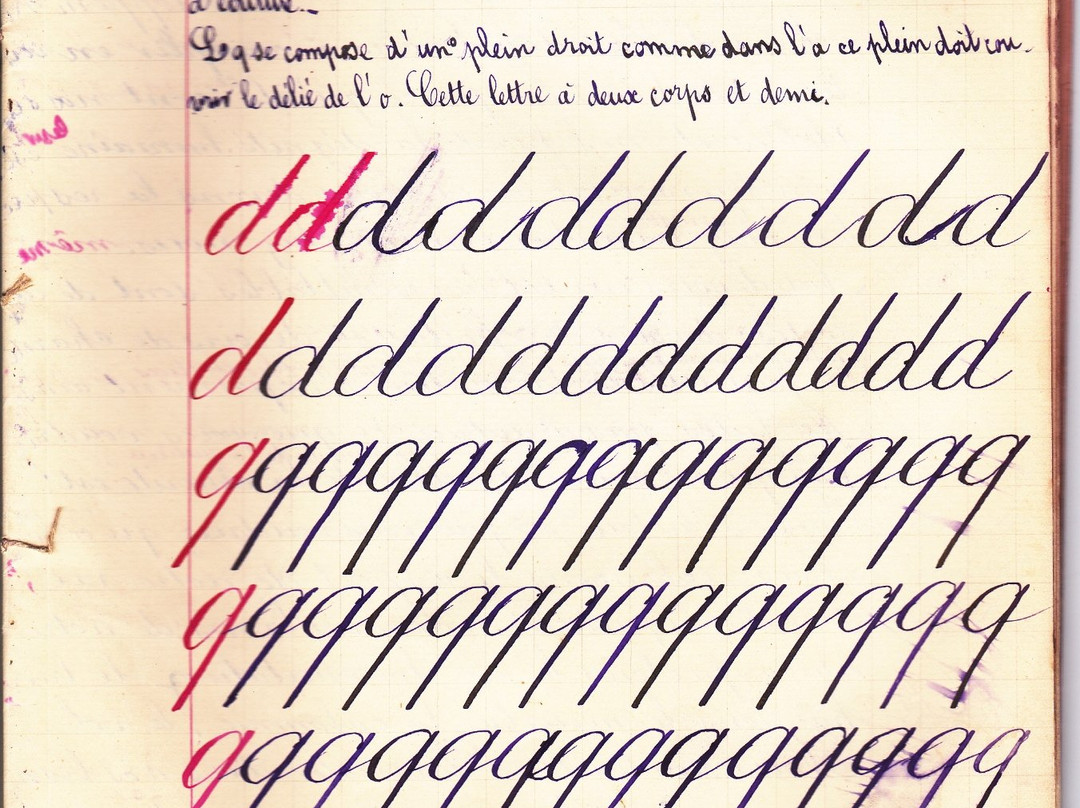 L q se compose d'un° plein droit comme dans l'a ce plein doit cou-
vrir le délié de l'o. Cette lettre à deux corps et demi.
d d d d d d d d d d
d d d d d d d d d d d d
q q q q q q q q q q q q q q
q q q q q q q q q q q q q q
q q q q q q q q q q q q q q